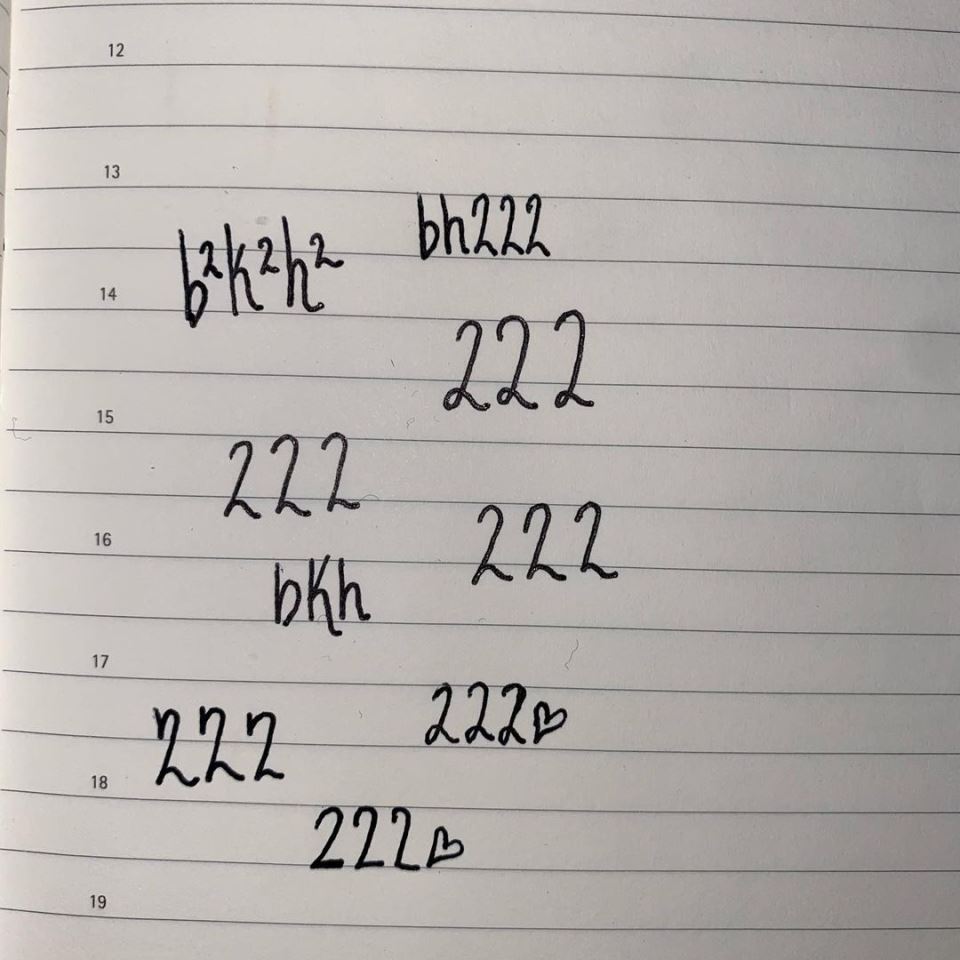 12
13
bh222
b²k²h²
14
222
15
222
222
16
bkh
17
222♡
222
18
222♡
19